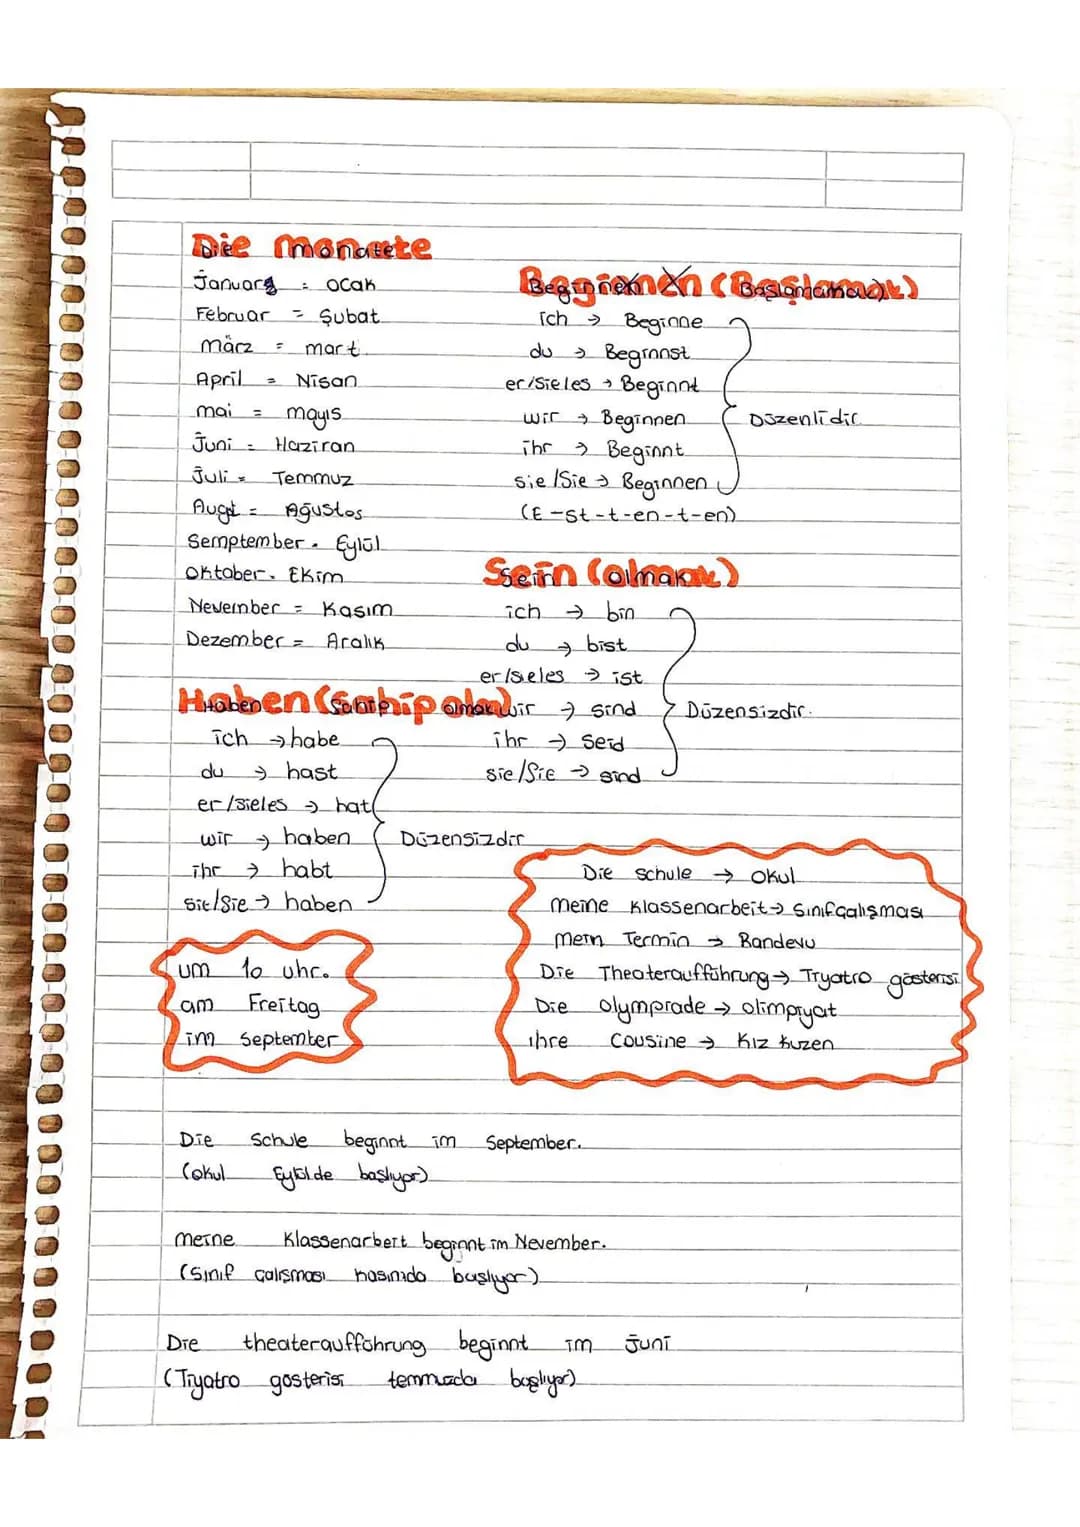 Die monate
Januar = ocak
Februar = Şubat
märz = mart
April = Nisan
mai = mayıs
Juni = Haziran
Juli = Temmuz
Augst = Ağustos
Semptember = Eylül
Oktober = Ekim
November = Kasım
Dezember = Aralık
Beginnen (Başlamak)
ich → Beginne
du → Beginnst
er/sie/es → Beginnt
wir → Beginnen
ihr → Beginnt
sie/Sie → Beginnen
Düzenlidir
(E-st-t-en-t-en)
Sein (olmak)
ich → bin
du → bist
er/sie/es → ist
wir → sind
ihr → seid
sie/Sie → sind
Düzensizdir.
Haben (Sahip olmak)
ich → habe
du → hast
er/sie/es → hat
wir → haben
ihr → habt
sie/Sie → haben
Düzensizdir
um 10 uhr.
am Freitag
im september
Die schule → okul
meine Klassenarbeit → sınıf çalışması
mein Termin → Randevu
Die Theateraufführung → Tiyatro gösterisi
Die olympiade → olimpiyat
ihre Cousine → Kız kuzen
Die Schule beginnt im September.
(okul Eylülde başlıyor)
meine Klassenarbeit beginnt im November.
(Sınıf çalışması kasımda başlıyor)
Die theateraufführung beginnt im Juni
(Tiyatro gösterisi temmuzda başlıyor)